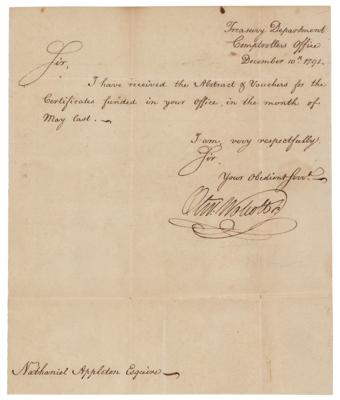 Treasury Department
Comptrollers Office
December 10th. 1791.
Sir,
I have received the Abstract & Vouchers for the
Certificates funded in your Office, in the month of
May last.
I am, very respectfully
Sir
Your Obedient Servt.
Olivr. Wolcott Jr
Nathaniel Appleton Esquire